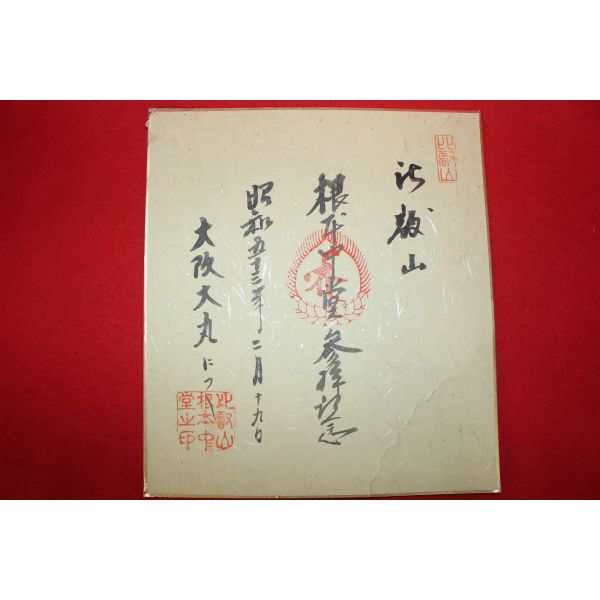 比叡山
比叡山
根本中堂参拝記念
昭和五十三年二月十九日
大阪大丸にて
比叡山
根本中
堂之印